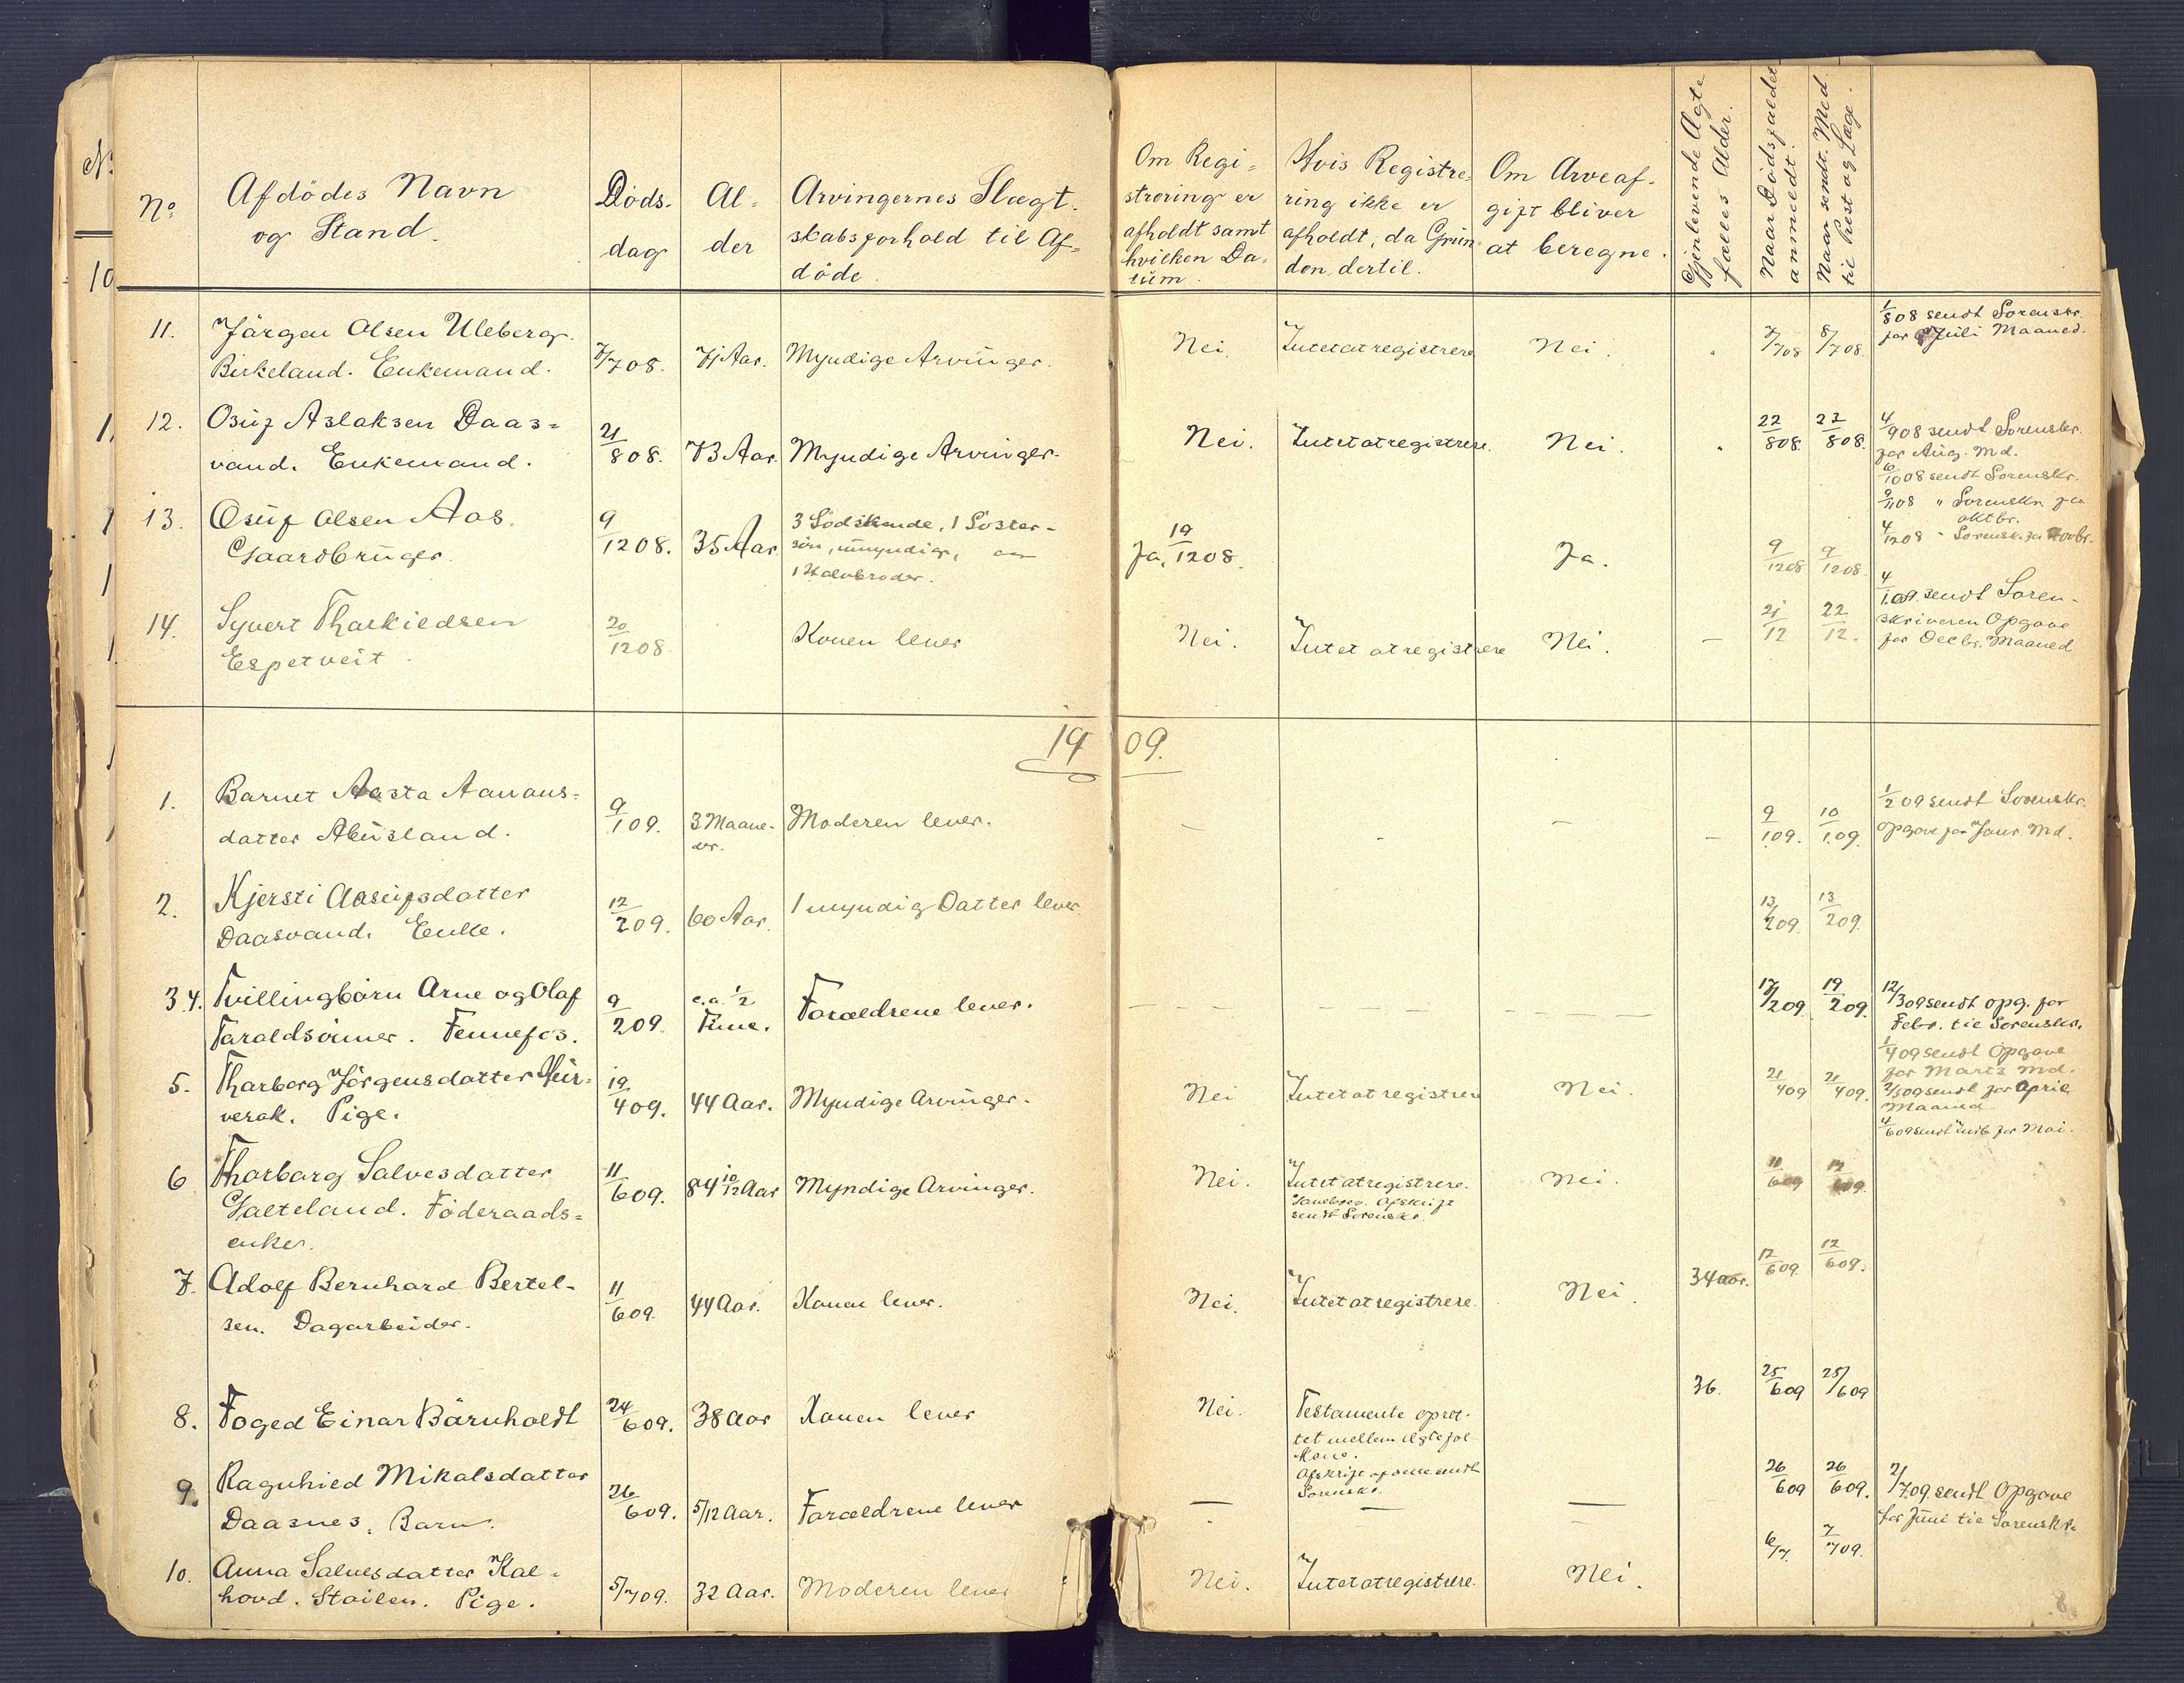 No
Afdödes Navn
og Stand.
Döds-
dag
Al-
der
Arvingernes Slægt-
skabsforhold til Af-
döde.
Om Regi-
strering er
afholdt samt
hvilken Da-
tum.
Hvis Registre-
ring ikke er
afholdt, da Grun-
den dertil.
Om Arveaf-
gift bliver
at beregne.
Gjenlevende Ægte
fælles Alder.
Naar Dödsfaldet
anmeldt.
Naar sendt. Med.
til Prest og Læge.
11.
Jörgen Olsen Uleberg
Birkeland. Enkemand.
7/7 08.
71 Aar.
Myndige Arvinger.
Nei.
Intet at registrere
Nei.
7/7 08
8/7 08.
1/8 08 sendt Sorenskr.
for Juli Maaned.
12.
Osuf Aslaksen Daas-
vand. Enkemand.
21/8 08.
73 Aar.
Myndige Arvinger.
Nei.
Intet at registrere.
Nei.
22/8 08.
22/8 08.
4/9 08 sendt Sorenskr.
for Aug. Md.
6/10 08 sendt Sorenskr.
9/11 08 " Sorenskr. for
oktbr.
4/12 08 " Sorensk. for Novbr.
13.
Osuf Olsen Aas.
Gaardbruger.
9/12 08.
35 Aar
3 Södskende, 1 Söster-
sön, umyndig,
1 Halvbroder.
Ja, 19/12 08.
Ja.
9/12 08
9/12 08.
14.
Syvert Thorkildsen
Espetveit.
20/12 08
Konen lever
Nei.
Intet at registrere
Nei.
—
21/12
22/12.
4/1 09. sendt Soren-
skriveren Opgave
for Decbr. Maaned
1909.
1.
Barnet Aasta Aanons-
datter Abusland.
9/1 09.
3 Maane-
der.
Moderen lever.
—
-
—
—
9/1 09.
10/1 09.
1/2 09 sendt Sorenskr.
Opgave for Janr. Md.
2.
Kjersti Aasufsdatter
Daasvand. Enke.
12/2 09.
60 Aar.
1 myndig Datter lever
13/2 09.
13/2 09.
3 4.
Tvillingbörn Arne og Olaf
Taraldsönner. Fennefos.
9/2 09.
c.a. 1/2
Time.
Forældrene lever.
17/2 09
19/2 09.
12/3 09 sendt opg. for
Febr. til Sorenskr.
1/4 09 sendt Opgave
for Marts Md.
5.
Thorborg Jörgensdatter Hur-
verak. Pige.
19/4 09.
44 Aar.
Myndige Arvinger.
Nei
Intet at registrere
Nei.
21/4 09
21/4 09.
2/5 09 sendt for April
Maaned.
4/6 09 sendt indb. for Mai.
6
Thorborg Salvesdatter
Galteland. Föderaads-
enke.
11/6 09.
84 10/12 Aar
Myndige Arvinger.
Nei.
Intet at registrere.
Afskrift
sendt Sorenskr.
Nei.
11/6 09
14/6 09.
7.
Adolf Bernhard Bertel-
sen. Dagarbeider.
11/6 09.
44 Aar.
Konen lever.
Nei.
Intet at registrere.
Nei.
34 aar.
12/6 09
12/6 09.
8.
Foged Einar Bärnholdt
24/6 09.
38 Aar
Konen lever
Nei.
Testamente opret-
tet mellem Ægtefol-
kene.
Afskrift af dette sendt
Sorenskr.
36.
25/6 09
25/6 09
9.
Ragnhild Mikalsdatter
Daasnes, Barn.
26/6 09.
5/12 Aar.
Forældrene lever
—
—
—
26/6 09
26/6 09.
2/7 09. sendt Opgave
for Juni til Sorenskr.
10.
Anna Salvesdatter Kal-
hovd. Stoilen. Pige.
5/7 09.
32 Aar.
Moderen lever
Nei.
Intet at registrere.
Nei.
6/7.
7/7 09.
8